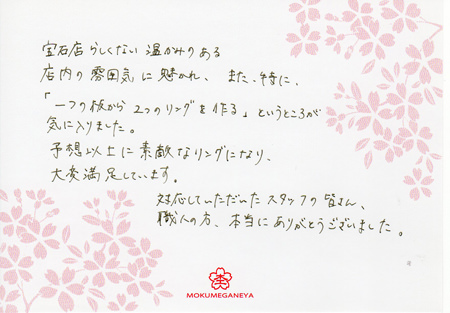 宝石店らしくない温かみのある
店内の雰囲気に魅かれ、また、特に、
「一つの板から2つのリングを作る」というところが
気に入りました。
予想以上に素敵なリングになり、
大変満足しています。
対応していただいたスタッフの皆さん、
職人の方、本当にありがとうございました。
MOKUMEGANEYA